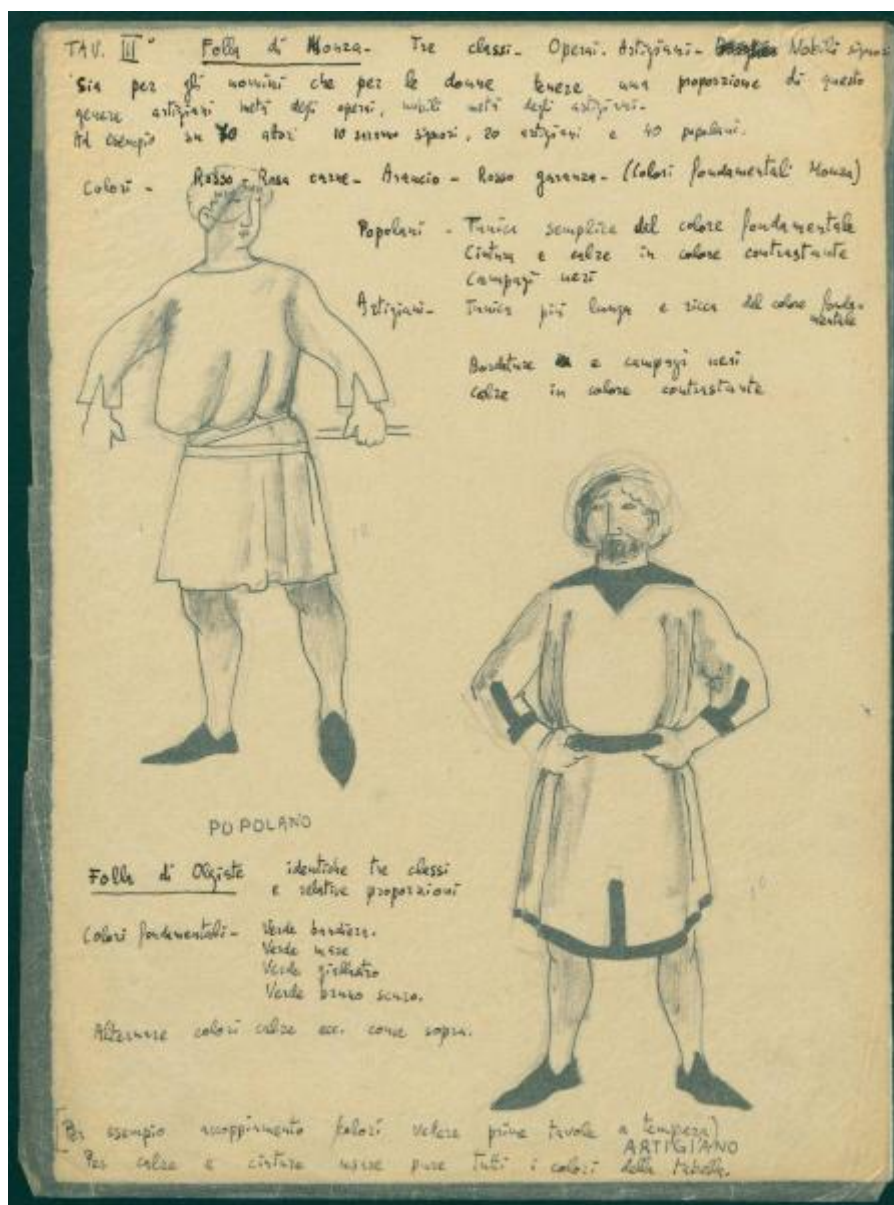 TAV. III° Folla di Monza - Tre classi - Operai. Artigiani - Nobili signori
Sia per gli uomini che per le donne tenere una proporzione di questo
genere artigiani metà degli operai, nobili metà degli artigiani -
Ad esempio su 70 attori 10 saranno signori, 20 artigiani e 40 popolani.
Colori - Rosso - Rosa carne - Arancio - Rosso garanza - (Colori fondamentali Monza)
Popolani - Tunica semplice del colore fondamentale
Cintura e calze in colore contrastante
Campagi neri
Artigiani - Tunica più lunga e ricca del colore fonda-
mentale
Bordature e campagi neri
calze in colore contrastante
POPOLANO
Folla di Olgiate identiche tre classi
e relative proporzioni
Colori fondamentali - Verde bandiera.
Verde mare
Verde giallastro
Verde bruno scuro.
Alternare colori calze ecc. come sopra.
(Per esempio accoppiamento colori vedere prime tavole a tempera)
ARTIGIANO
Per calze e cinture usare pure tutti i colori della tabella.